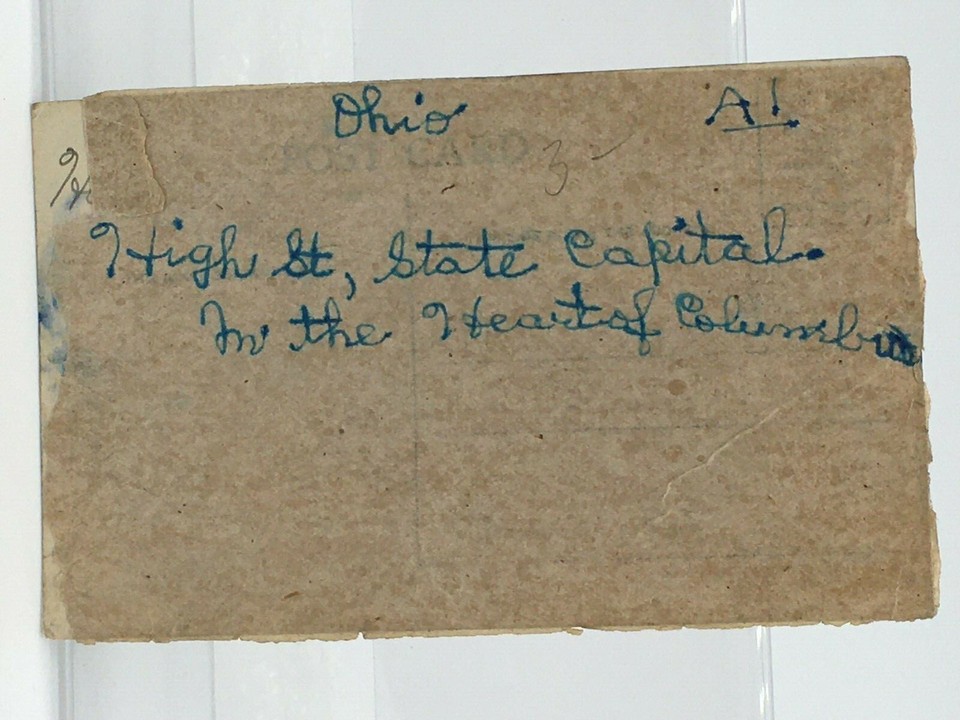 Ohio A1
POST CARD 3 -
High St, State Capital.
In the Heart of Columbus